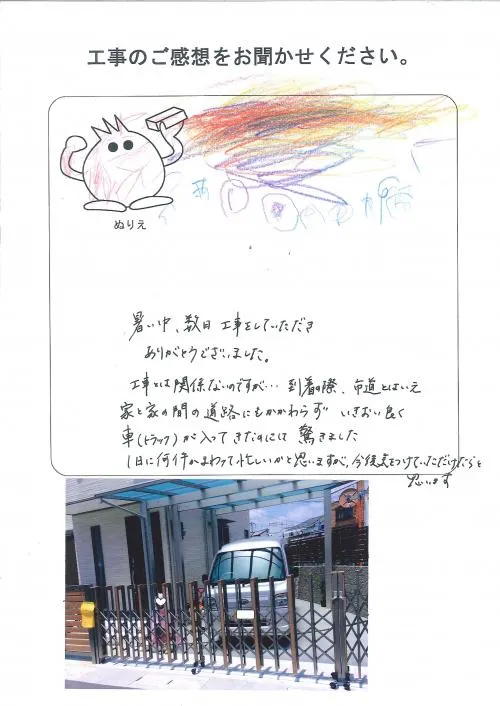 工事のご感想をお聞かせください。
ぬりえ
暑い中、数日 工事をしていただき
ありがとうございました。
工事とは関係ないのですが… 到着の際、市道とはいえ
家と家の間の道路にもかかわらず いきおい良く
車(トラック)が入ってきたのには 驚きました
1日に何件かまわって忙しいかと思いますが、今後気をつけていただけたらと
思います